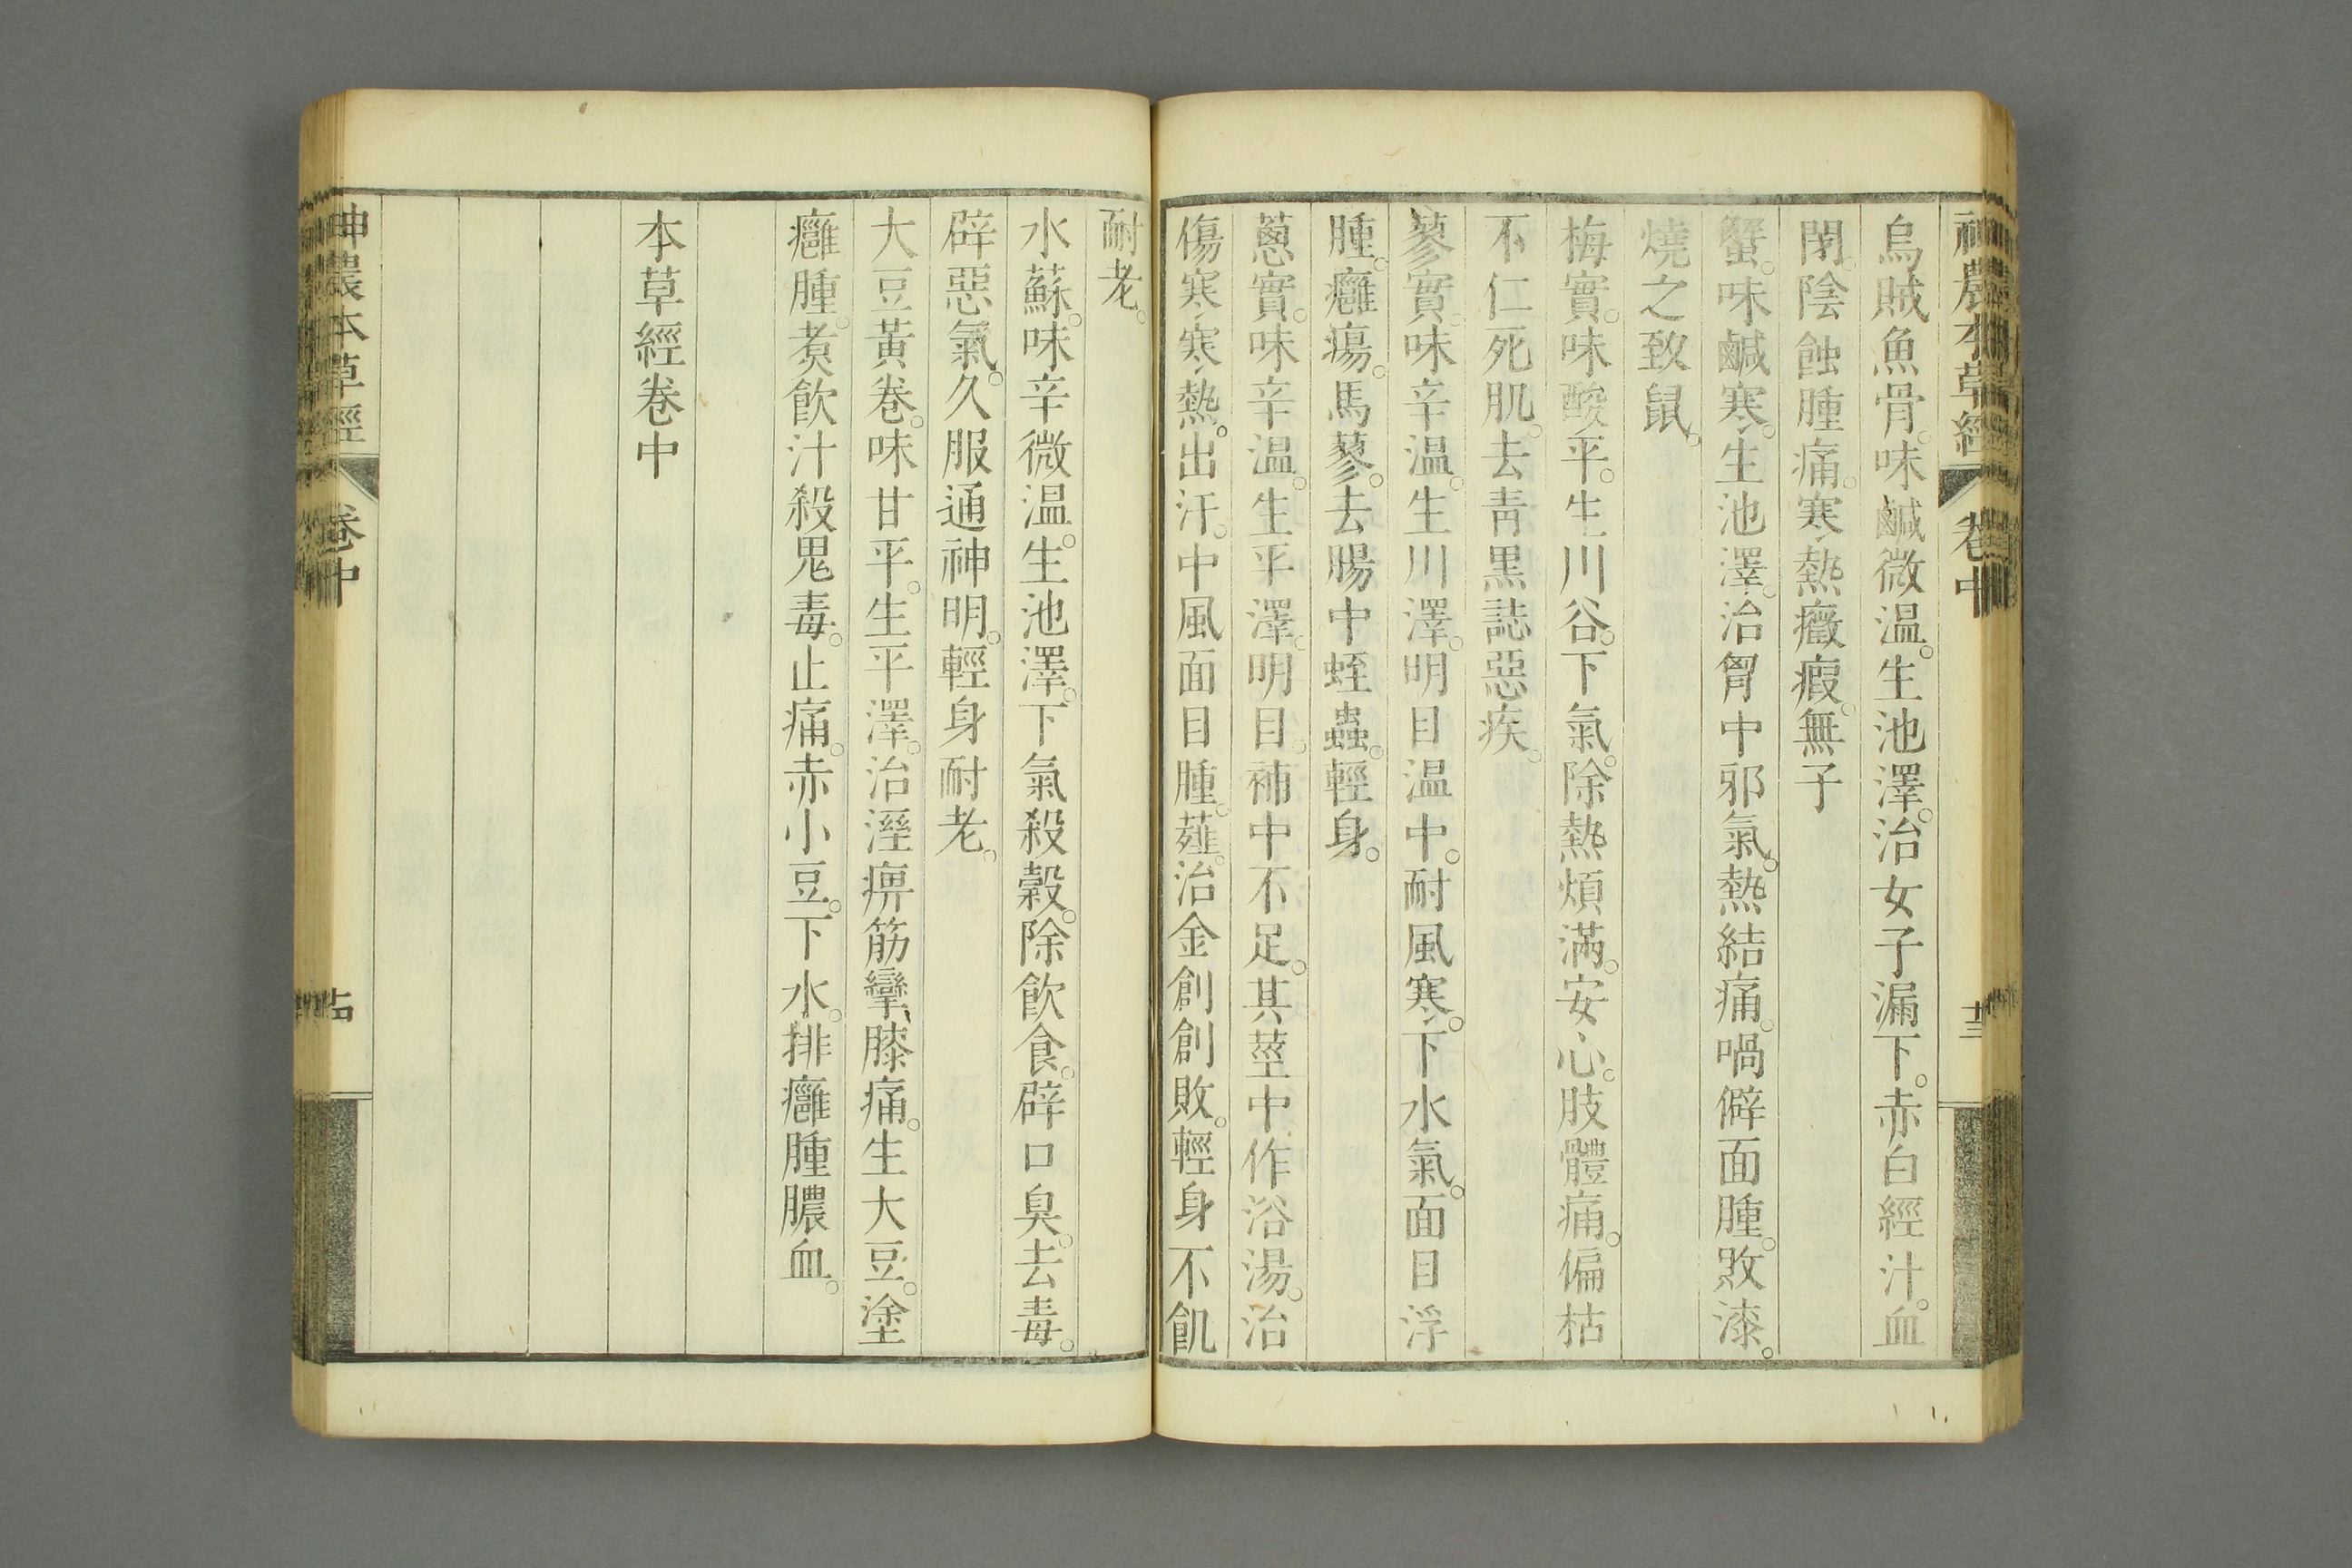 神農本草經 卷中 十三
烏賊魚骨。味鹹微温。生池澤。治女子漏下。赤白經汁。血
閉。陰蝕腫痛。寒熱癥瘕。無子
蟹。味鹹寒。生池澤。治胷中邪氣。熱結痛。喎僻面腫。敗漆。
燒之致鼠。
梅實。味酸平。生川谷。下氣。除熱煩滿。安心。肢體痛。偏枯
不仁死肌。去青黒誌惡疾。
蓼實。味辛温。生川澤。明目温中。耐風寒。下水氣。面目浮
腫。癰瘍。馬蓼。去腸中蛭蟲。輕身。
蔥實。味辛温。生平澤。明目。補中不足。其莖中作浴湯。治
傷寒寒熱。出汗。中風面目腫。薤。治金創創敗。輕身不飢
耐老。
水蘇。味辛微温。生池澤。下氣殺穀。除飲食。辟口臭。去毒。
辟惡氣。久服通神明。輕身耐老。
大豆黃卷。味甘平。生平澤。治溼痹筋攣膝痛。生大豆。塗
癰腫。煑飲汁殺鬼毒。止痛。赤小豆。下水。排癰腫膿血。
本草經卷中
神農本草經 卷中 十四